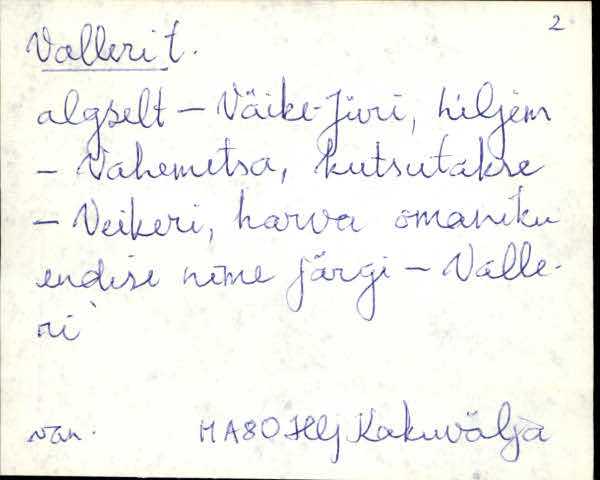 2
Valleri t.
algselt – Väike-Jüri, hiljem
– Vahemetsa, kutsutakse
– Veikeri, harva omaniku
endise nime järgi – Valle-
ri
van. MA80 HLj Kakuvälja